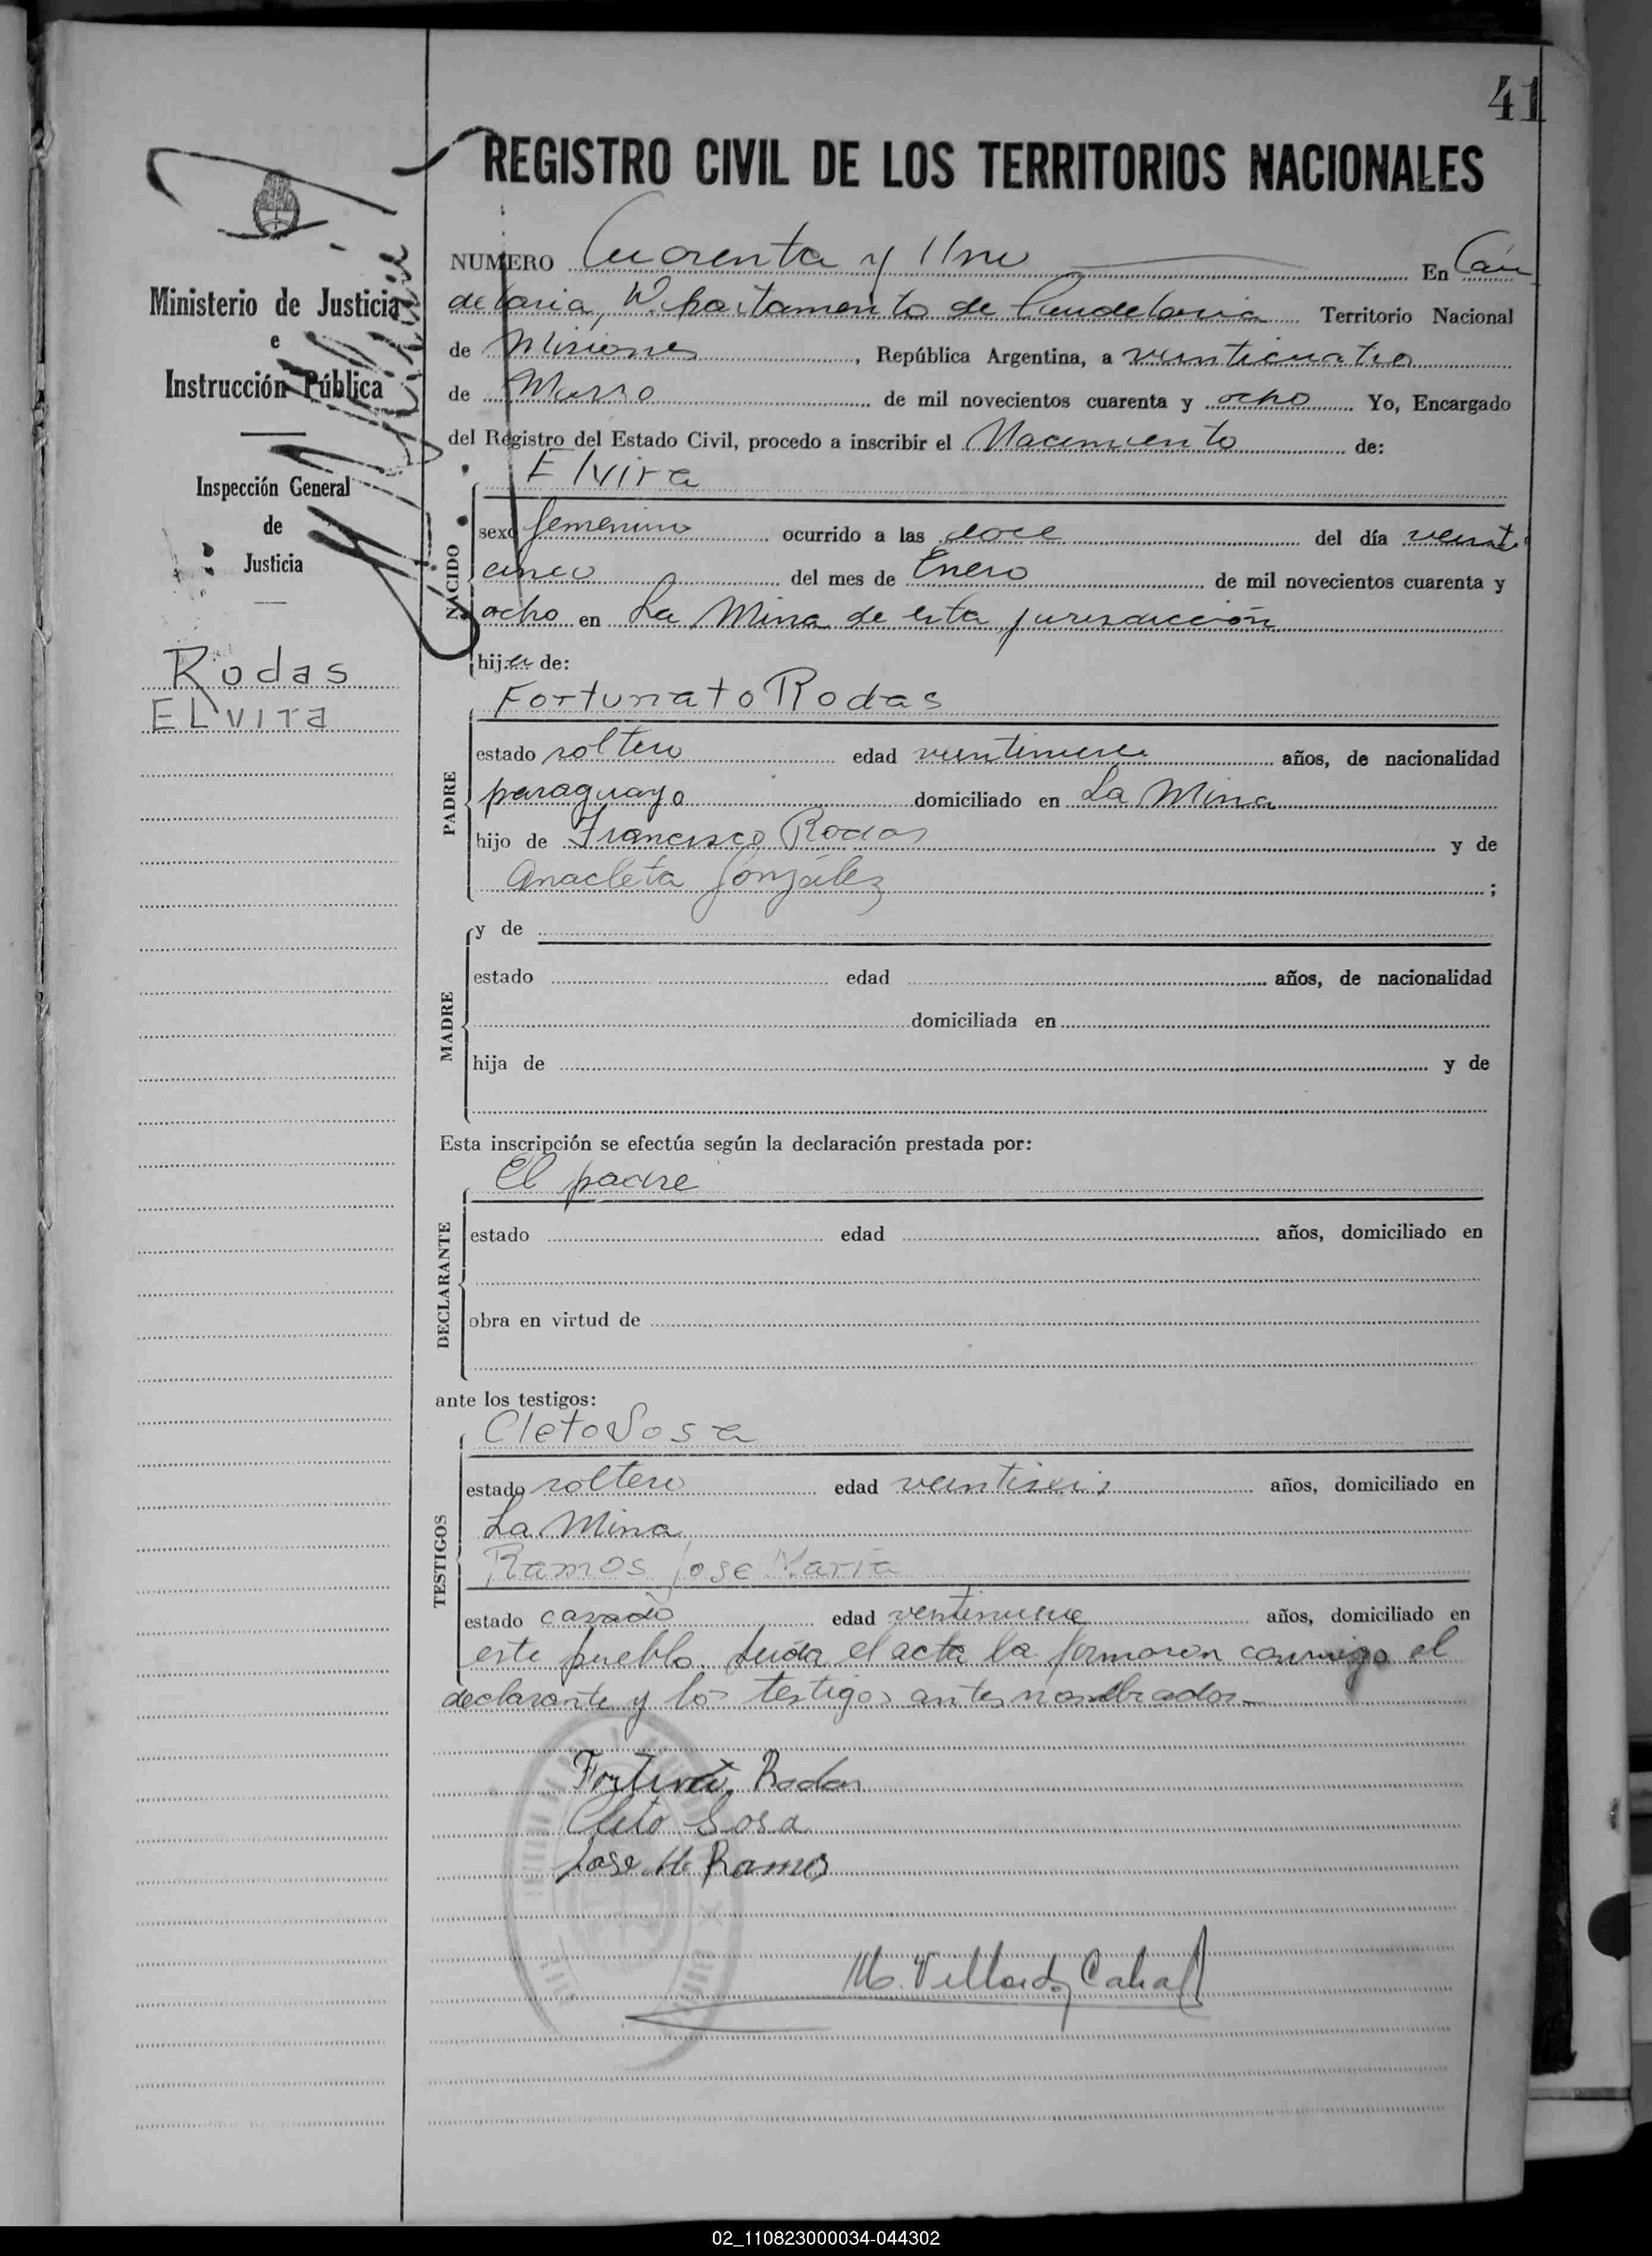 41
REGISTRO CIVIL DE LOS TERRITORIOS NACIONALES
Ministerio de Justicia
e
Instrucción Pública
Inspección General
de
Justicia
Rodas
ELvira
NUMERO Cuarenta y Uno En Can
delaria, Departamento de Candelaria Territorio Nacional
de Misiones, República Argentina, a veinticuatro
de Marzo de mil novecientos cuarenta y ocho Yo, Encargado
del Registro del Estado Civil, procedo a inscribir el Nacimiento de:
Elvira
NACIDO
sexo femenino ocurrido a las doce del día veinti
cinco del mes de Enero de mil novecientos cuarenta y
ocho en La Mina de esta jurisdicción
hija de:
Fortunato Rodas
PADRE
estado soltero edad veintinueve años, de nacionalidad
paraguayo domiciliado en La Mina
hijo de Francisco Rodas y de
Anacleta González ;
y de
MADRE
estado edad años, de nacionalidad
domiciliada en
hija de y de
Esta inscripción se efectúa según la declaración prestada por:
El padre
DECLARANTE
estado edad años, domiciliado en
obra en virtud de
ante los testigos:
Cleto Sosa
TESTIGOS
estado soltero edad veintiseis años, domiciliado en
La Mina
Ramos Jose Maria
estado casado edad veintinueve años, domiciliado en
este pueblo. Leida el acta la firmaron conmigo el
declarante y los testigos antes nombrados.-
Fortunato Rodas
Cleto Sosa
Jose M. Ramos
M. Cabal
02_110823000034-044302